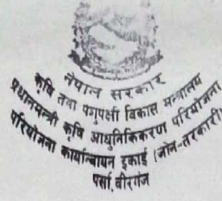 नेपाल सरकार
कृषि तथा पशुपक्षी विकास मन्त्रालय
प्रधानमन्त्री कृषि आधुनिकिकरण परियोजना
परियोजना कार्यान्वयन इकाई (जोन-तरकारी)
पर्सा, वीरगंज